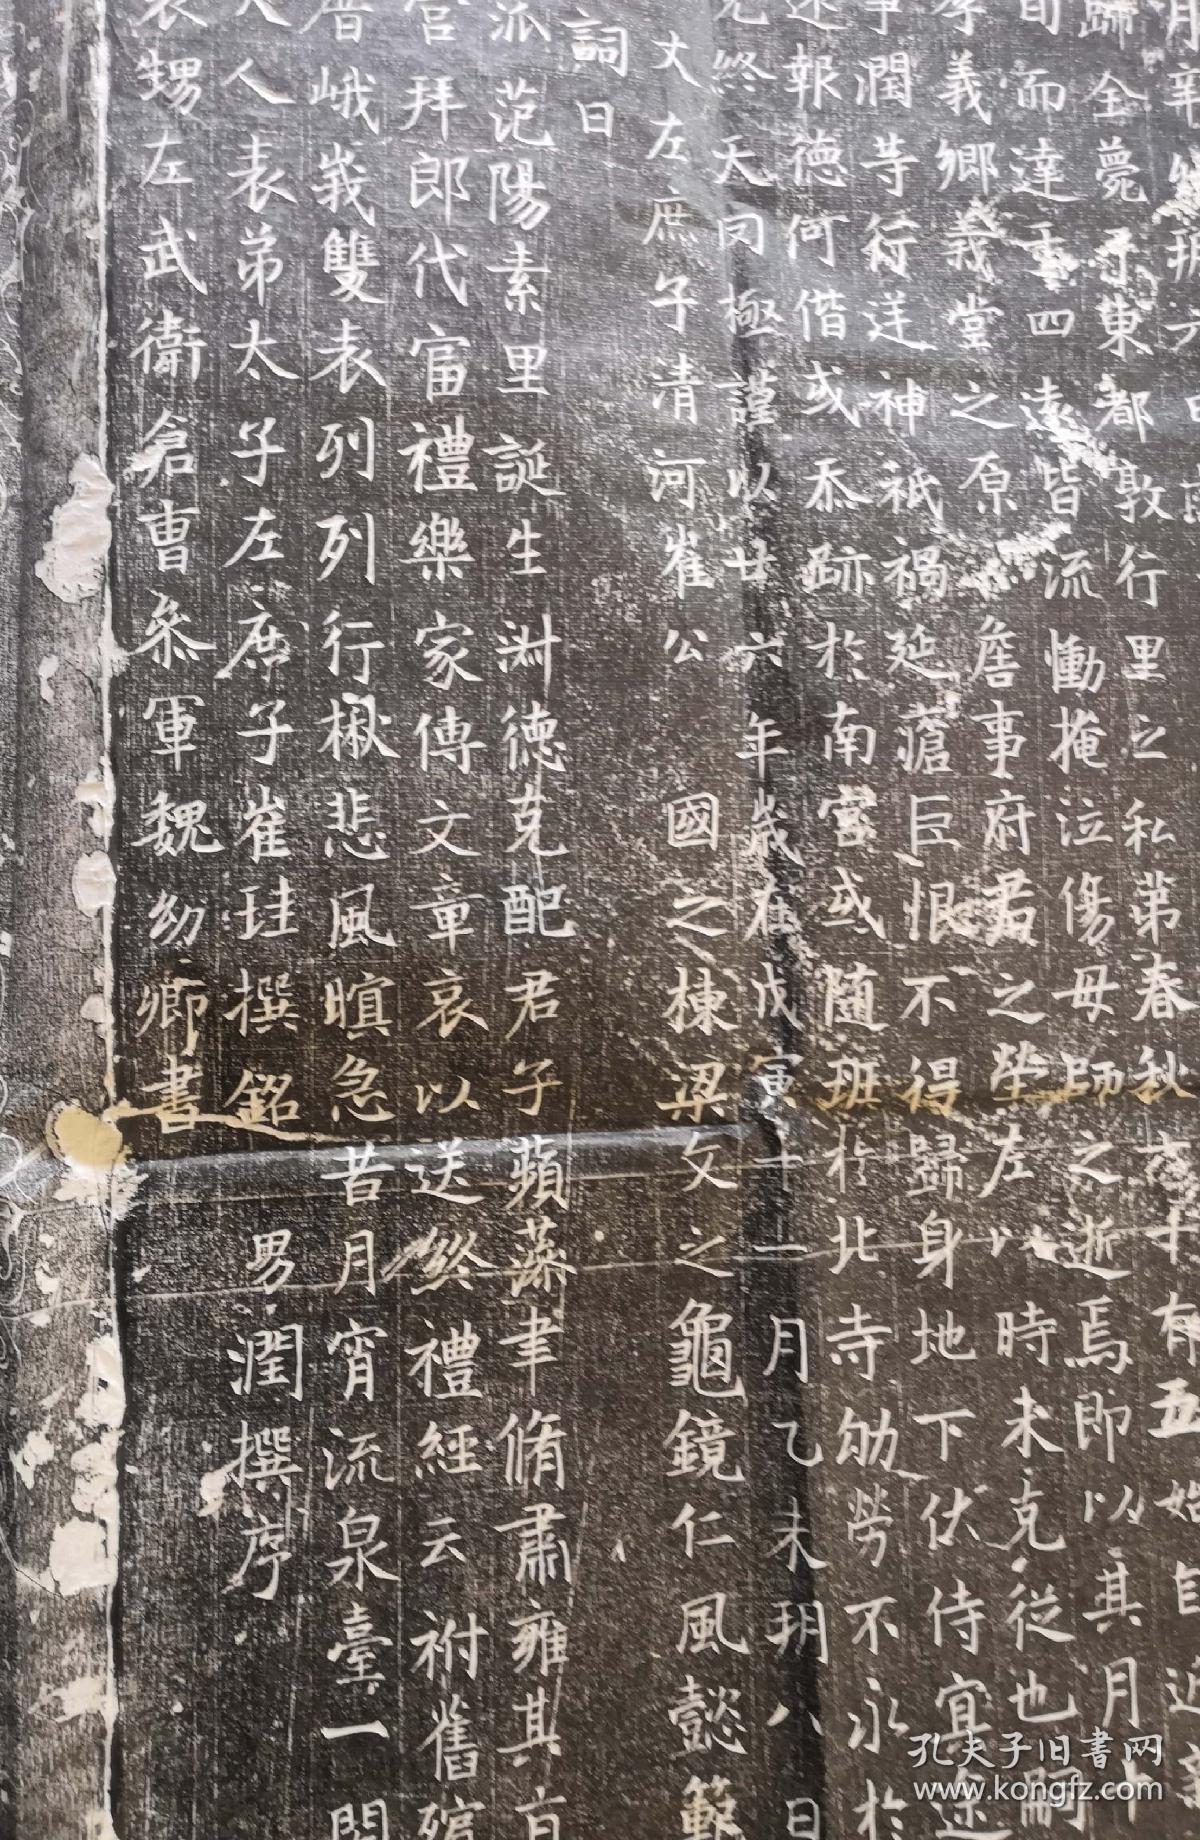 歸全薨于東都敦行里之私第春秋六十有五始自近
旬而達事四遠皆流慟掩泣傷母師之逝焉即以其月
孝義鄉義堂之原詹事府君之塋左以時未克從也嗣
事潤等行迕神祇禍延蒼巨恨不得歸身地下伏侍宜
述報德何偕或忝跡於南宮或隨班於北寺劬勞不永於
終天同極謹以廿六年歲在戊寅十一月乙未朔八日
丈左庶子清河崔公 國之棟梁文之龜鏡仁風懿範
詞曰
派范陽素里誕生淑德克配君子蘋藻聿脩肅雍其
官拜郎代富禮樂家傳文章哀以送終禮經云祔舊殯
峨峩雙表列列行楸悲風暄急昔月宵流泉臺一閉
人表弟太子左庶子崔珪撰銘 男潤撰序
表甥左武衛倉曹叅軍魏幼卿書
孔夫子旧書网
www.kongfz.com